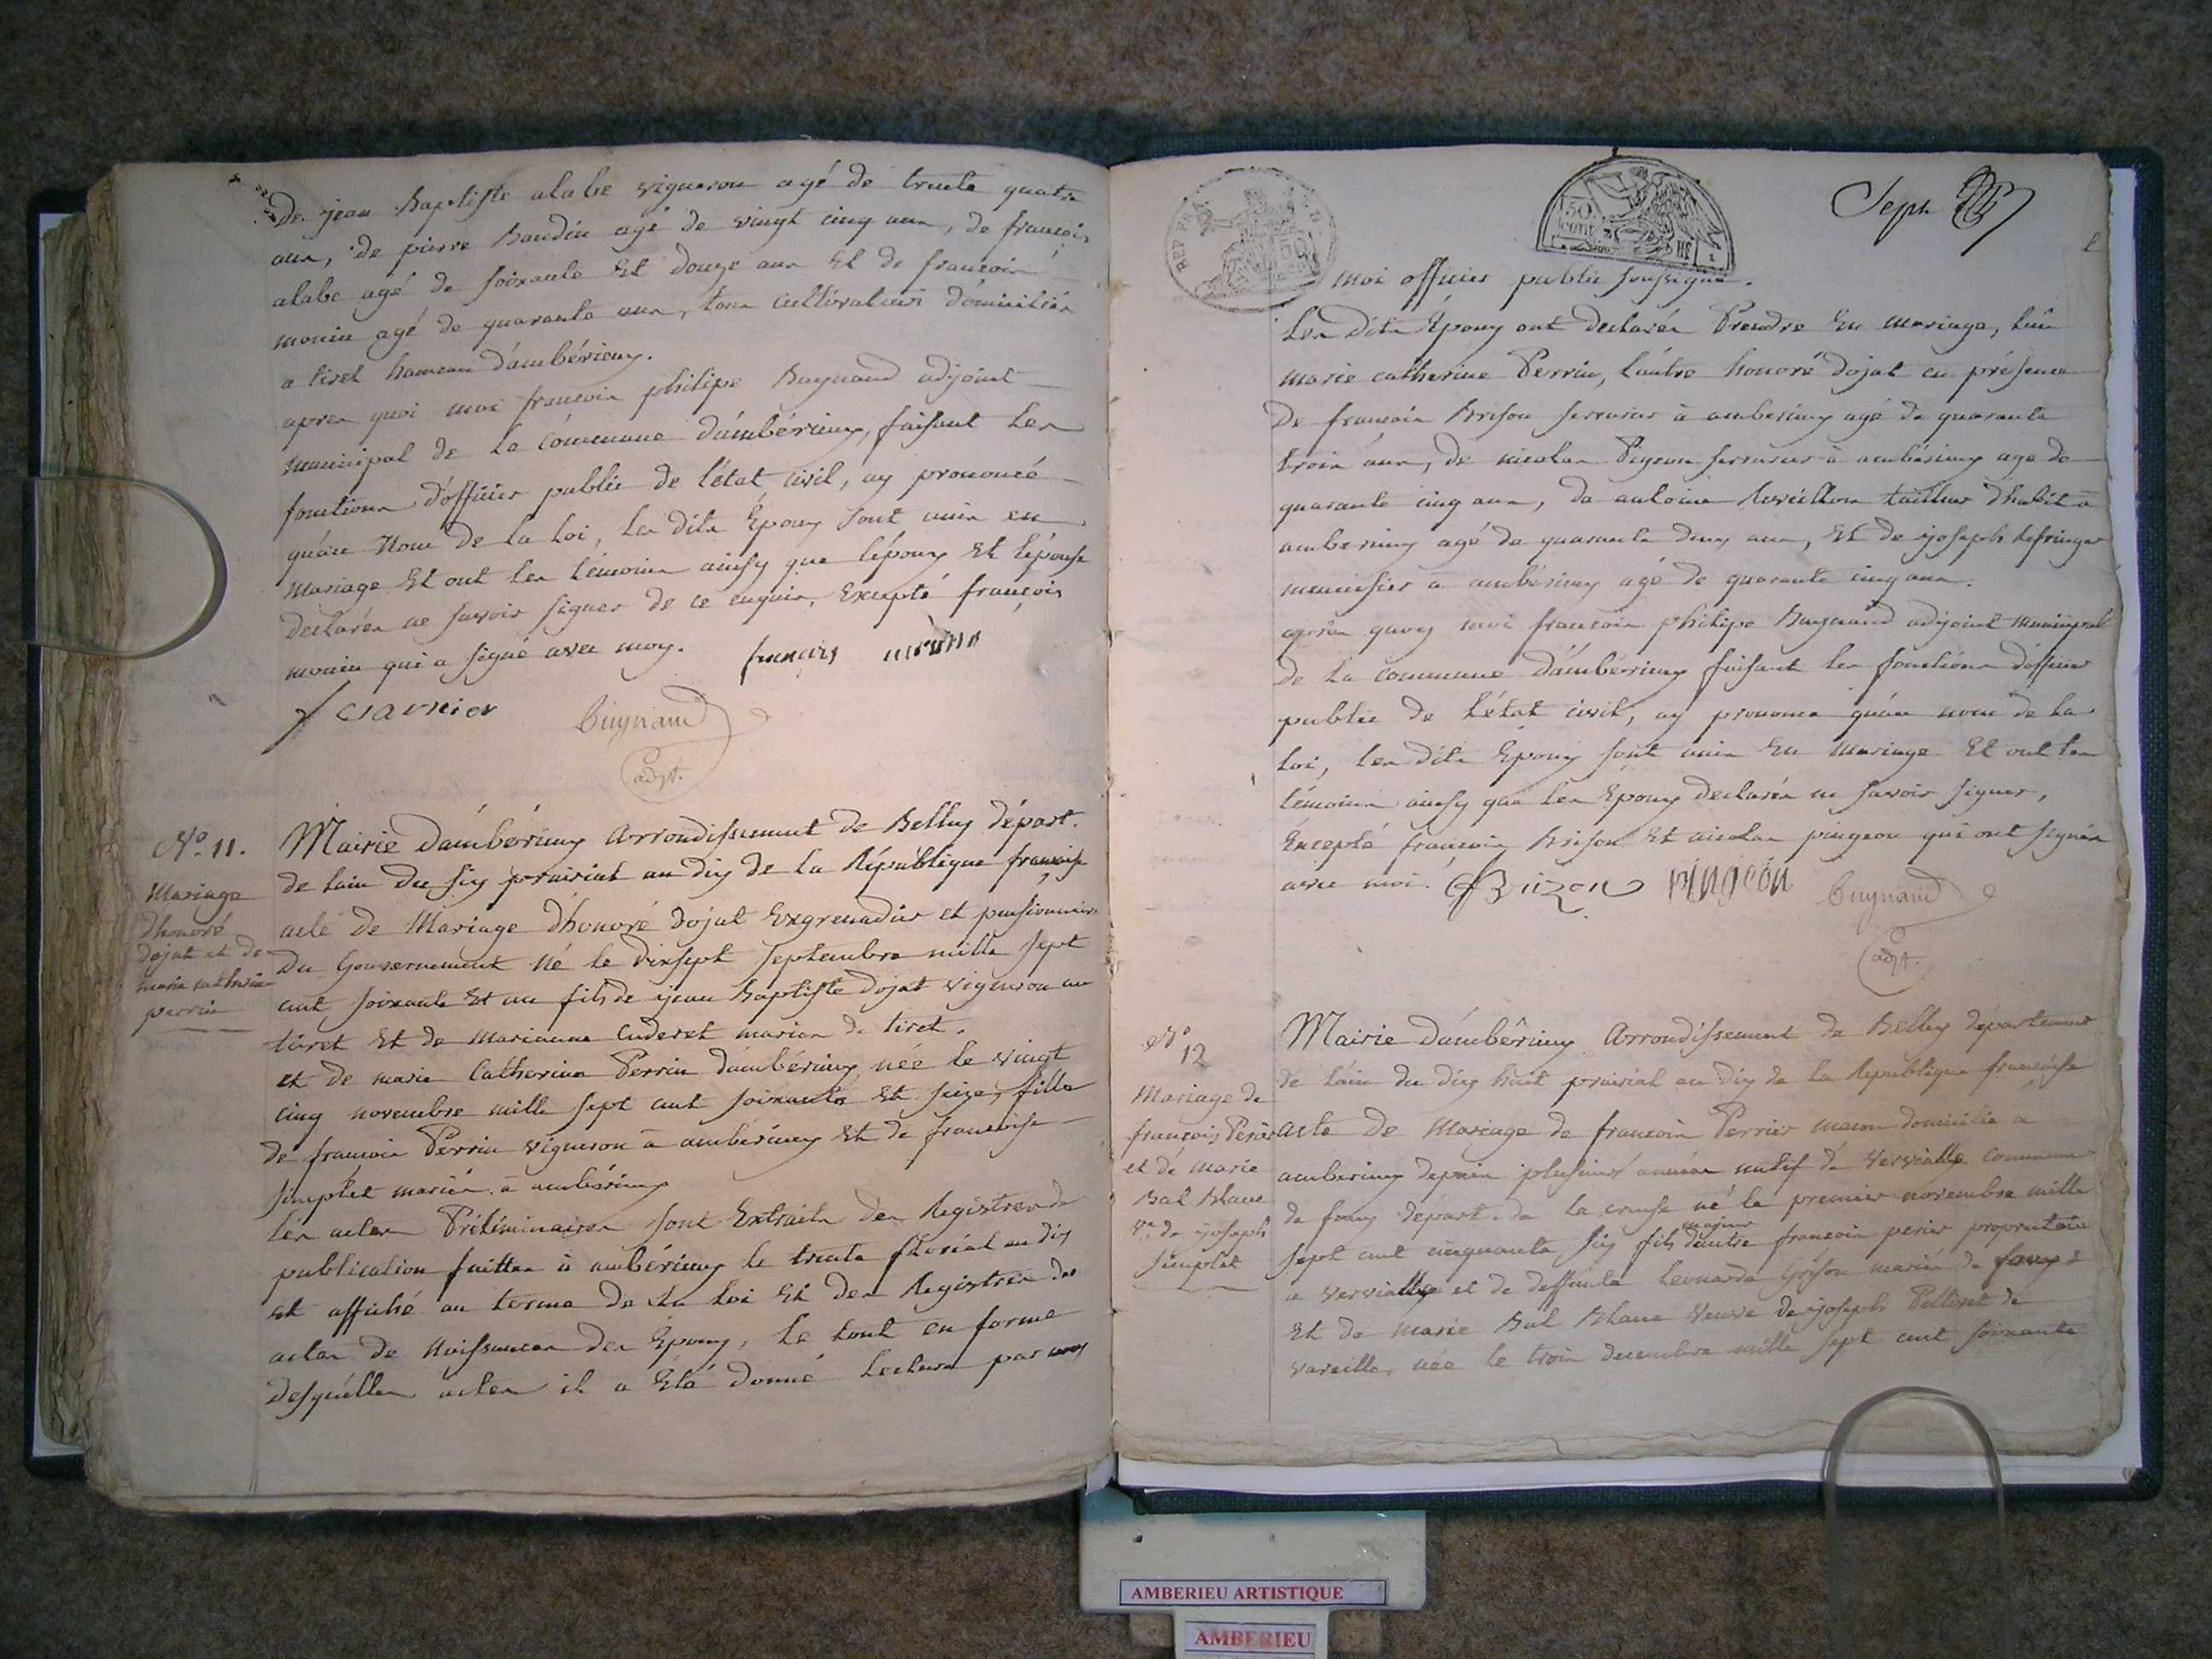 de jean Baptiste alabe vigneron agé de trente quatre
ans, de pierre Baudin agé de vingt cinq ans, de françois
alabe agé de soixante Et douze ans Et de francois
monin agé de quarante ans, tous cultivateurs domiciliés
a tiret hameau d'ambérieux.
apres quoi moi francois philipe Buynand adjoint
municipal de la commune d'ambérieux, faisant les
fonctions d'officier public de l'état civil, ay prononcé
qu'au Nom de la loi, les dits Époux sont unis en
mariage Et ont les témoins ainsy que l'époux Et l'épouse
declarés ne savoir signer de ce enquis, Excepté françois
monin qui a signé avec moy. françois monin
Buynand
adjt.
No. 11.
Mariage
dhonoré
dojat et de
marie catherine
perrin
Mairie d'ambérieux Arrondissement de Belley départ.
de lain du six prairial an dix de la République française
acte de Mariage d'honoré dojat Exgrenadier et pensionnaire
du Gouvernement né le dixsept Septembre mille sept
cent soixante Et un fils de jean Baptiste dojat vigneron au
tiret Et de Marianne Cuderet mariés de tiret.
et de marie Catherine Perrin d'ambérieux née le vingt
cinq novembre mille sept cent soixante Et seize, fille
de francois Perrin vigneron à ambérieux Et de francoise
simplet mariés à ambérieux
les actes Préliminaires sont Extraits des Registres de
publication faittes à ambérieux le trente floréal an dix
Et affiché au terme de la loi Et des Registres des
actes de Naissances des Époux, le tout en forme
desquelles actes il a Été donné lecture par moy
REP FRA
50
50 cent
Sept
moi officier public soussigné.
Les dits Époux ont declarés Prendre En mariage, l'un
marie catherine Perrin, l'autre honoré dojat en présence
De francois Brison serrurier à amberieux agé de quarante
trois ans, de nicolas Pigeon serrurier à ambérieux age de
quarante cinq ans, de antoine Revillon tailleur d'habit à
amberieux agé de quarante deux ans, Et de joseph
menuisier a ambérieux agé de quarante cinq ans.
après quoy moi francois philipe Buynand adjoint municipal
de la commune d'ambérieux faisant les fonctions d'officier
public de l'état civil, ay prononcé qu'au nom de la
loi, les dits Époux sont unis En Mariage Et ont les
témoins ainsy que les Époux declarés ne savoir signer,
Excepté francois Brison Et nicolas pingeon qui ont signés
avec moi. Brizon pingeon Buynand
adjt.
No 12
Mariage de
francois Perier
et de marie
Bal Blanc
Ve. de joseph
simplet
Mairie d'ambérieux Arrondissement de Belley departement
de lain du dix huit prairial an dix de la Republique francaise
acte de Mariage de francois Perrier macon domicilié a
amberieux depuis plusieurs années natif de vervialle commune
de départ. de la creuse né le premier novembre mille
sept cent cinquante six fils majeur d'autre francois perier proprietaire
a vervialle et de deffunte Leonarde Grison mariés de
Et de marie Bal Blanc veuve de joseph Pelleret de
vareille, née le trois decembre mille sept cent soixante
AMBERIEU ARTISTIQUE
AMBERIEU